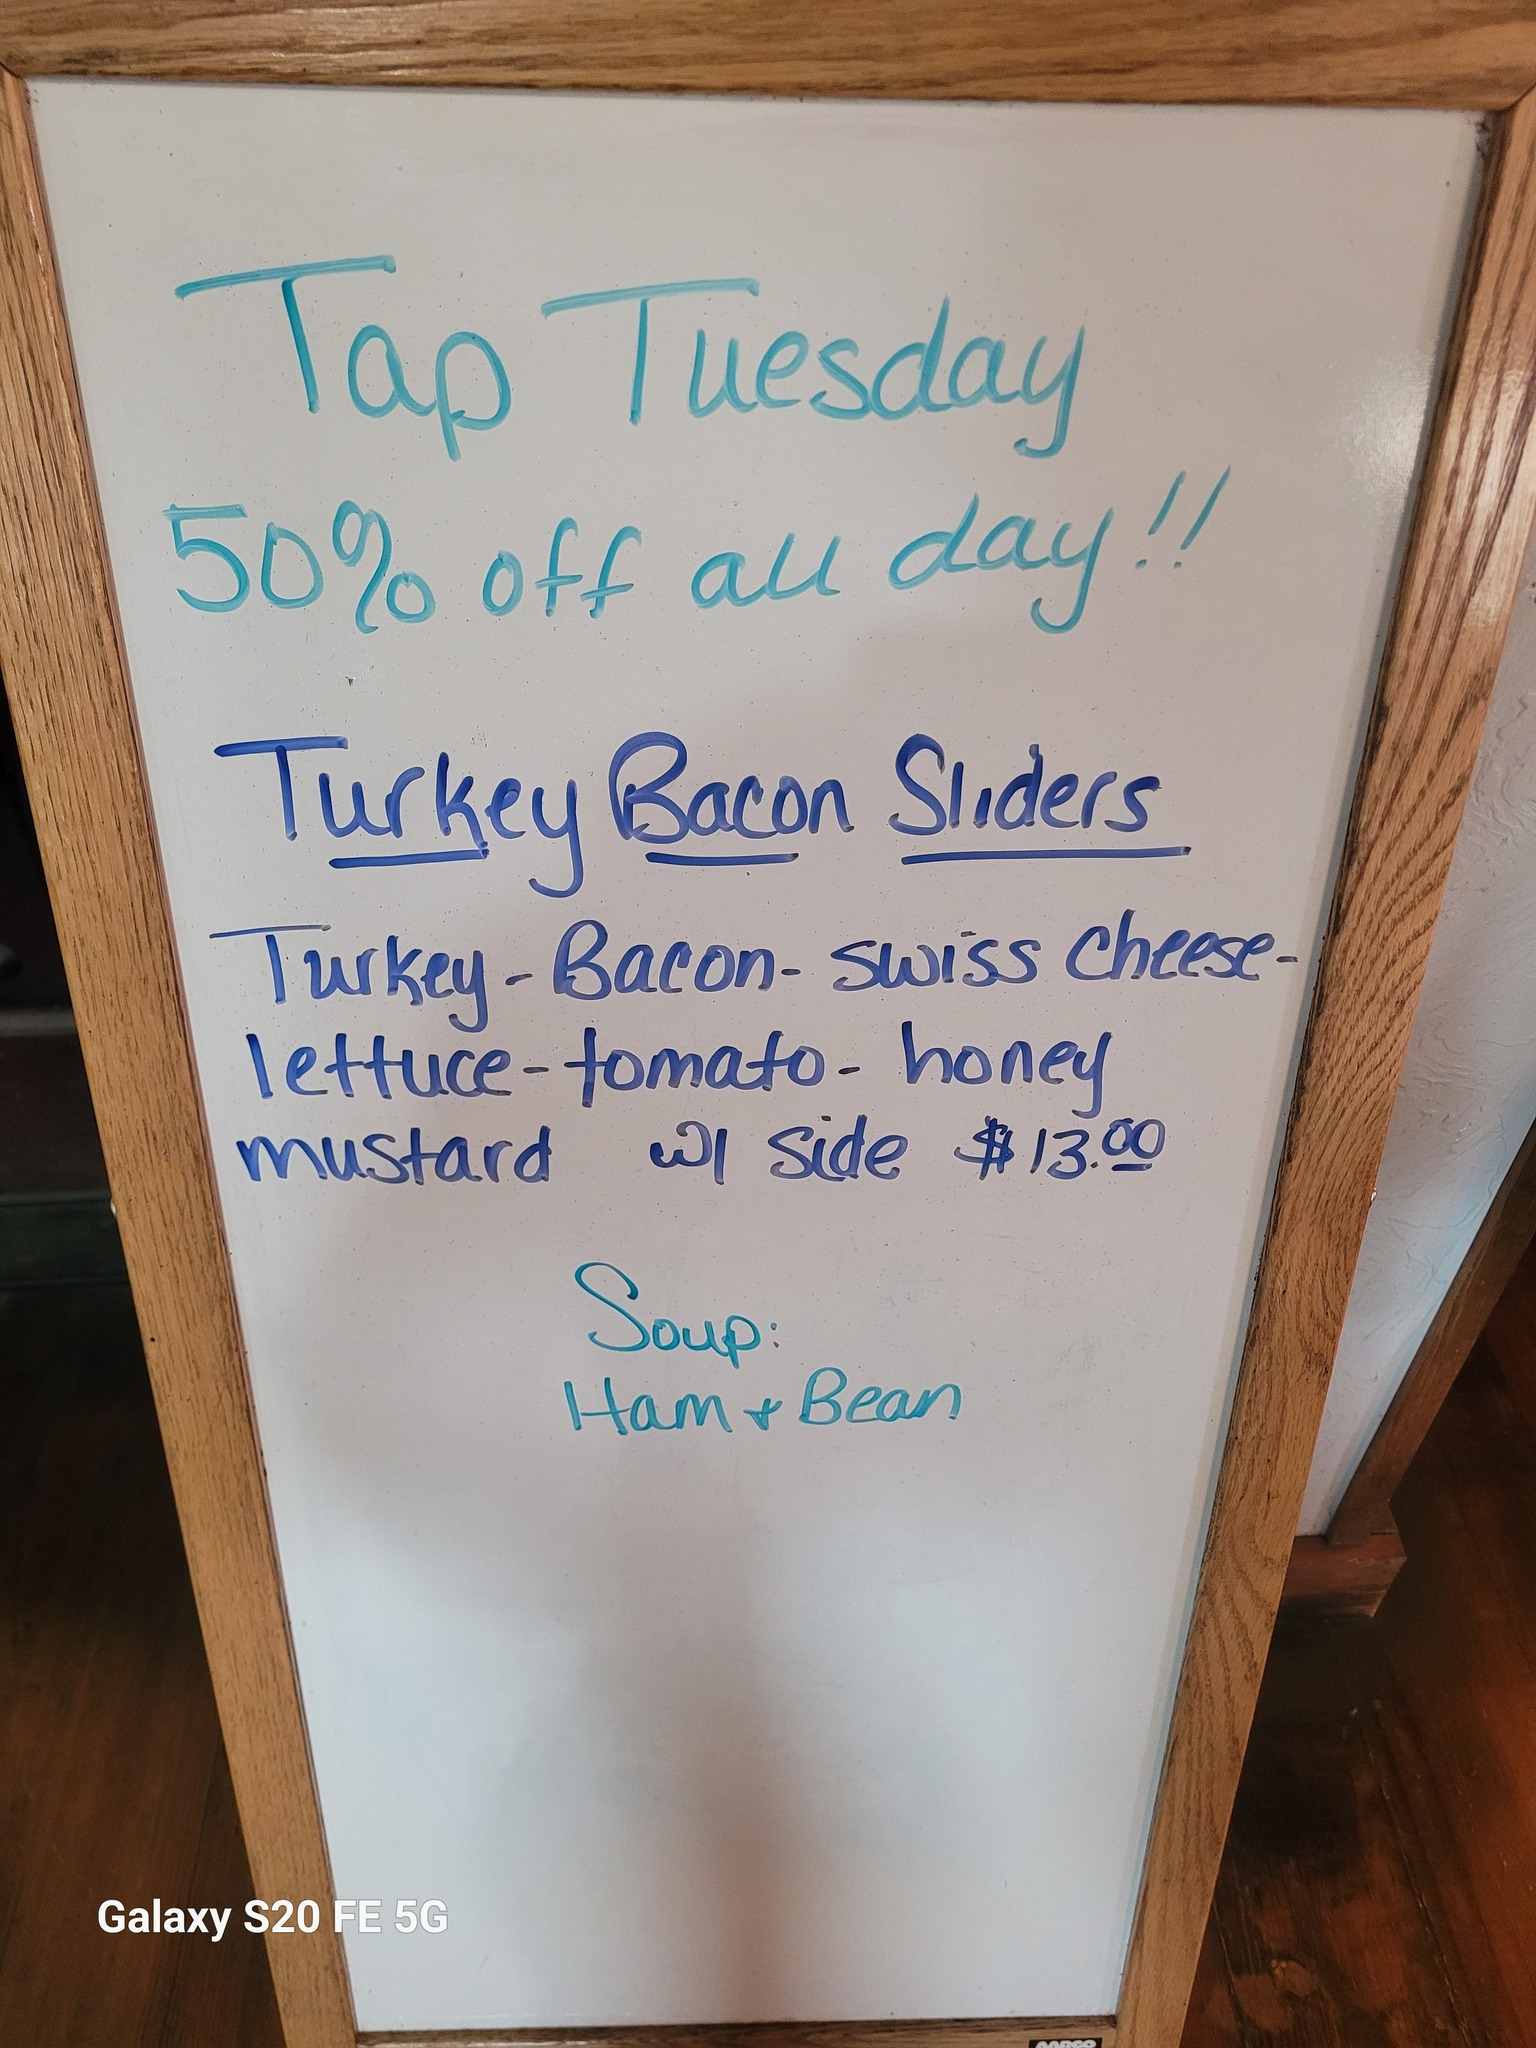 Tap Tuesday
50% off all day!!
Turkey Bacon Sliders
Turkey - Bacon - swiss cheese -
lettuce - tomato - honey
mustard w/ side $13.00
Soup:
Ham + Bean
Galaxy S20 FE 5G
AARCO